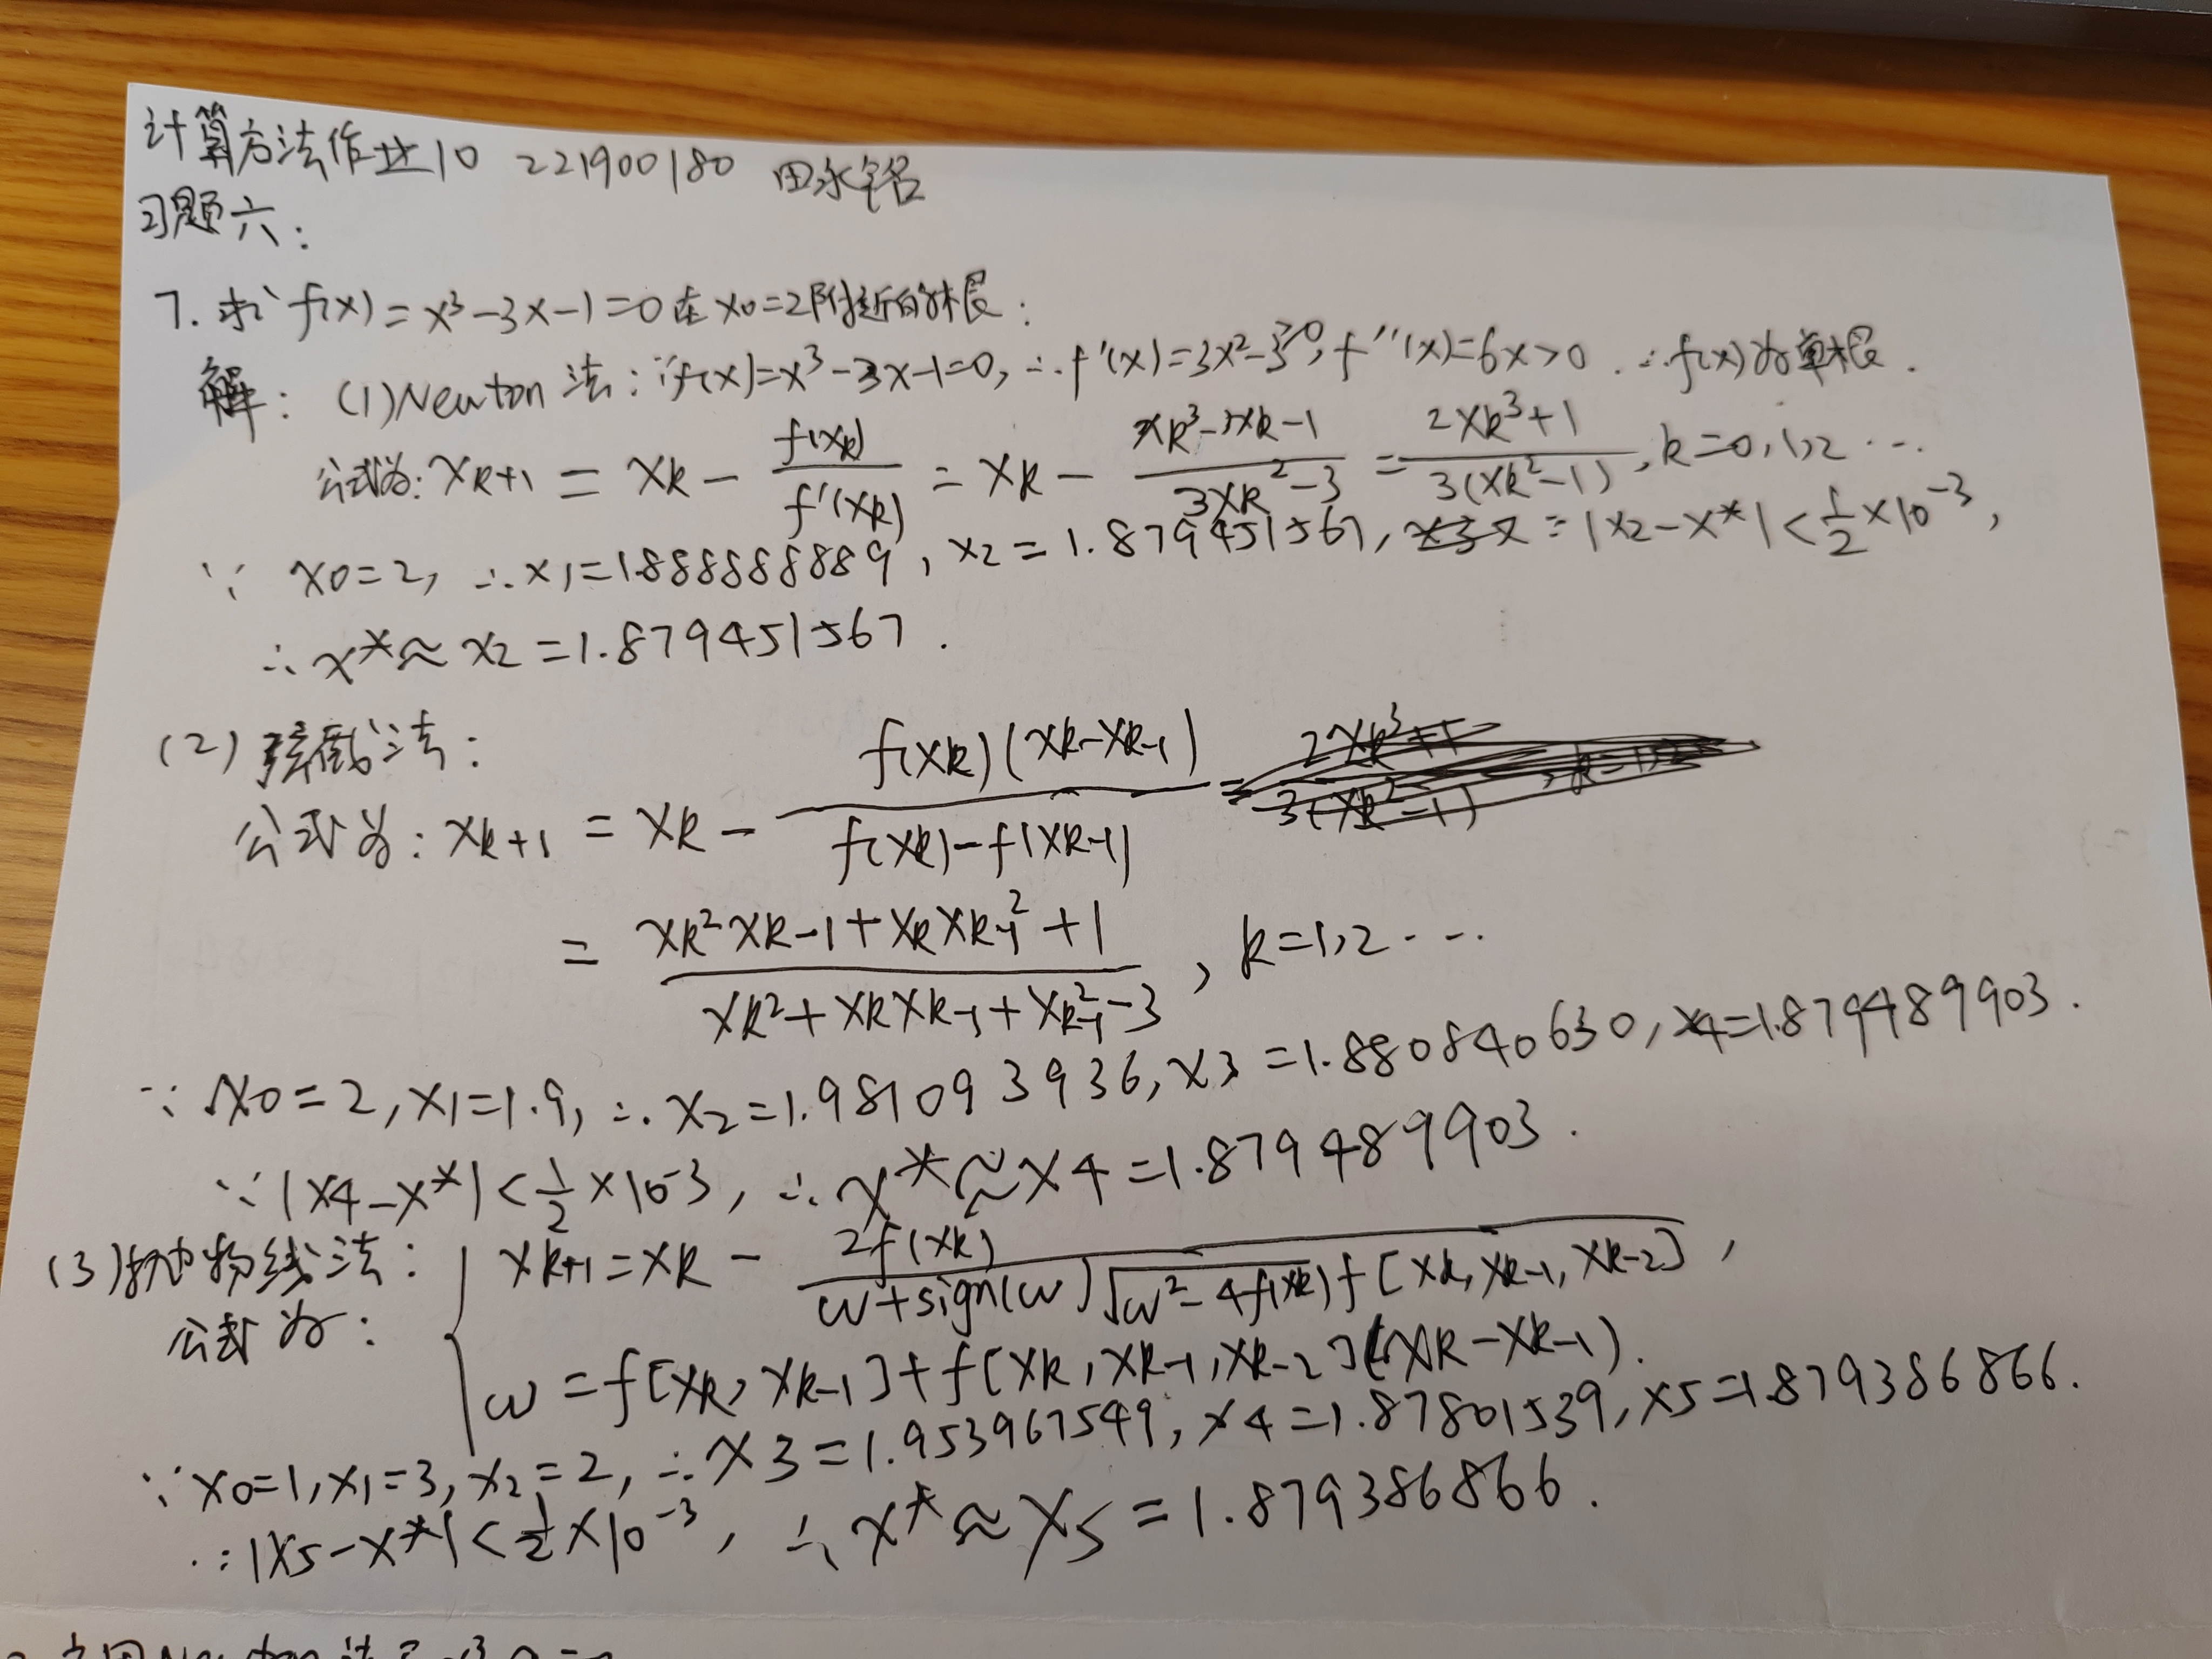 计算方法作业10 221900180 田永铭
习题六:
7. 求 f(x) = x³-3x-1=0 在 x0=2附近的根:
解: (1)Newton 法: ∵f(x)=x³-3x-1=0, ∴f'(x)=3x²-3>0, f''(x)=6x>0. ∴f(x)为单根.
公式为: xk+1 = xk - f(xk)/f'(xk) = xk - (xk³-3xk-1)/(3xk²-3) = (2xk³+1)/(3(xk²-1)), k=0,1,2 ...
∵ x0=2, ∴x1=1.888888889, x2=1.879451567, |x2-x*|<1/2×10⁻³,
∴x*≈x2=1.879451567.
(2) 弦截法:
公式为: xk+1 = xk - f(xk)(xk-xk-1)/(f(xk)-f(xk-1))
= (xk²xk-1+xkxk-1²+1)/(xk²+xkxk-1+xk-1²-3), k=1,2 ...
∵ x0=2, x1=1.9, ∴x2=1.981093936, x3=1.880840630, x4=1.879489903.
∵|x4-x*|<1/2×10-3, ∴x*≈x4=1.879489903.
(3)抛物线法: { xk+1=xk - 2f(xk)/(w+sign(w)√(w²-4f(xk)f[xk,xk-1,xk-2])),
公式为: w=f[xk,xk-1]+f[xk,xk-1,xk-2](xk-xk-1).
∵x0=1,x1=3,x2=2, ∴x3=1.953967549, x4=1.87801539, x5=1.879386866.
∵|x5-x*|<1/2×10⁻³, ∴x*≈x5=1.879386866.